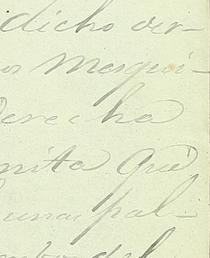 dicho ver-
os mesqui-
derecha
nita que
una pal-